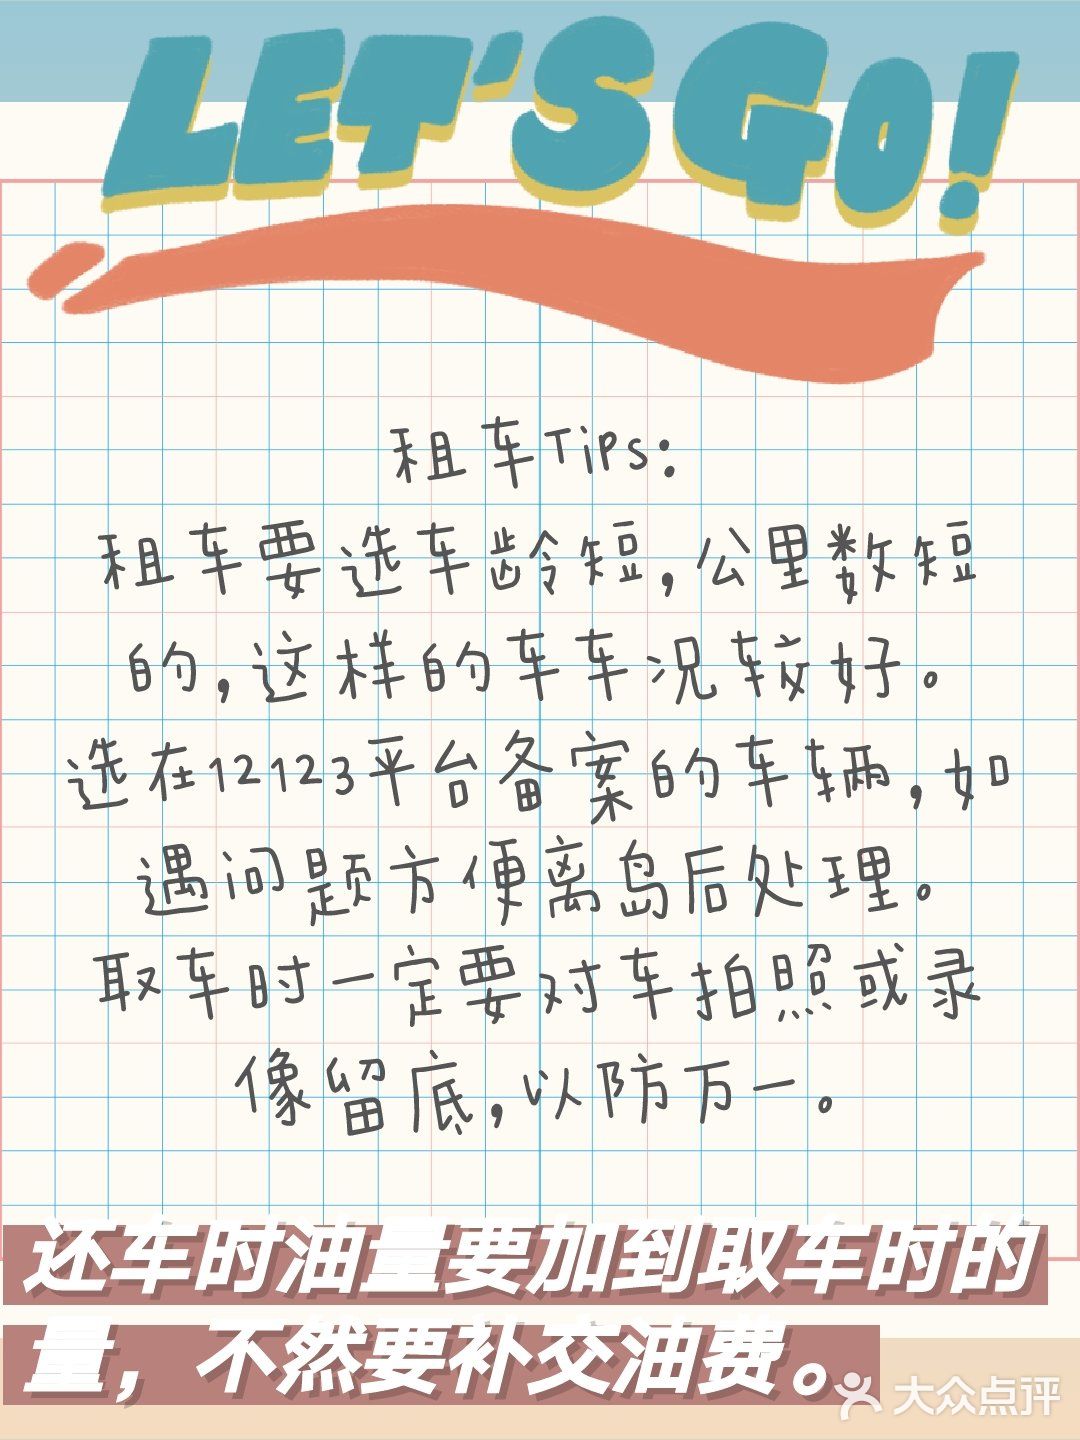 LET'S GO!
租车Tips:
租车要选车龄短,公里数短
的,这样的车车况较好。
选在12123平台备案的车辆,如
遇问题方便离岛后处理。
取车时一定要对车拍照或录
像留底,以防万一。
还车时油量要加到取车时的
量，不然要补交油费。
大众点评